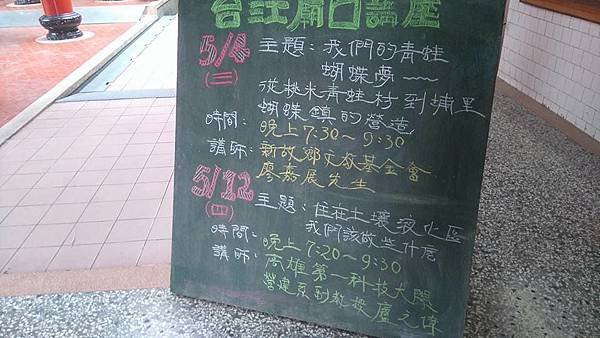 台江廟口講座
5/4 主題：我們的青蛙
(三) 蝴蝶夢~~
從桃米青蛙村到埔里
蝴蝶鎮的營造
時間：晚上7:30～9:30
講師：新故鄉文教基金會
廖嘉展先生
5/12 主題：住在土壤液化區
(四) 我們該做些什麼
時間：晚上7:20～9:30
講師：高雄第一科技大學
營建系副教授盧之偉